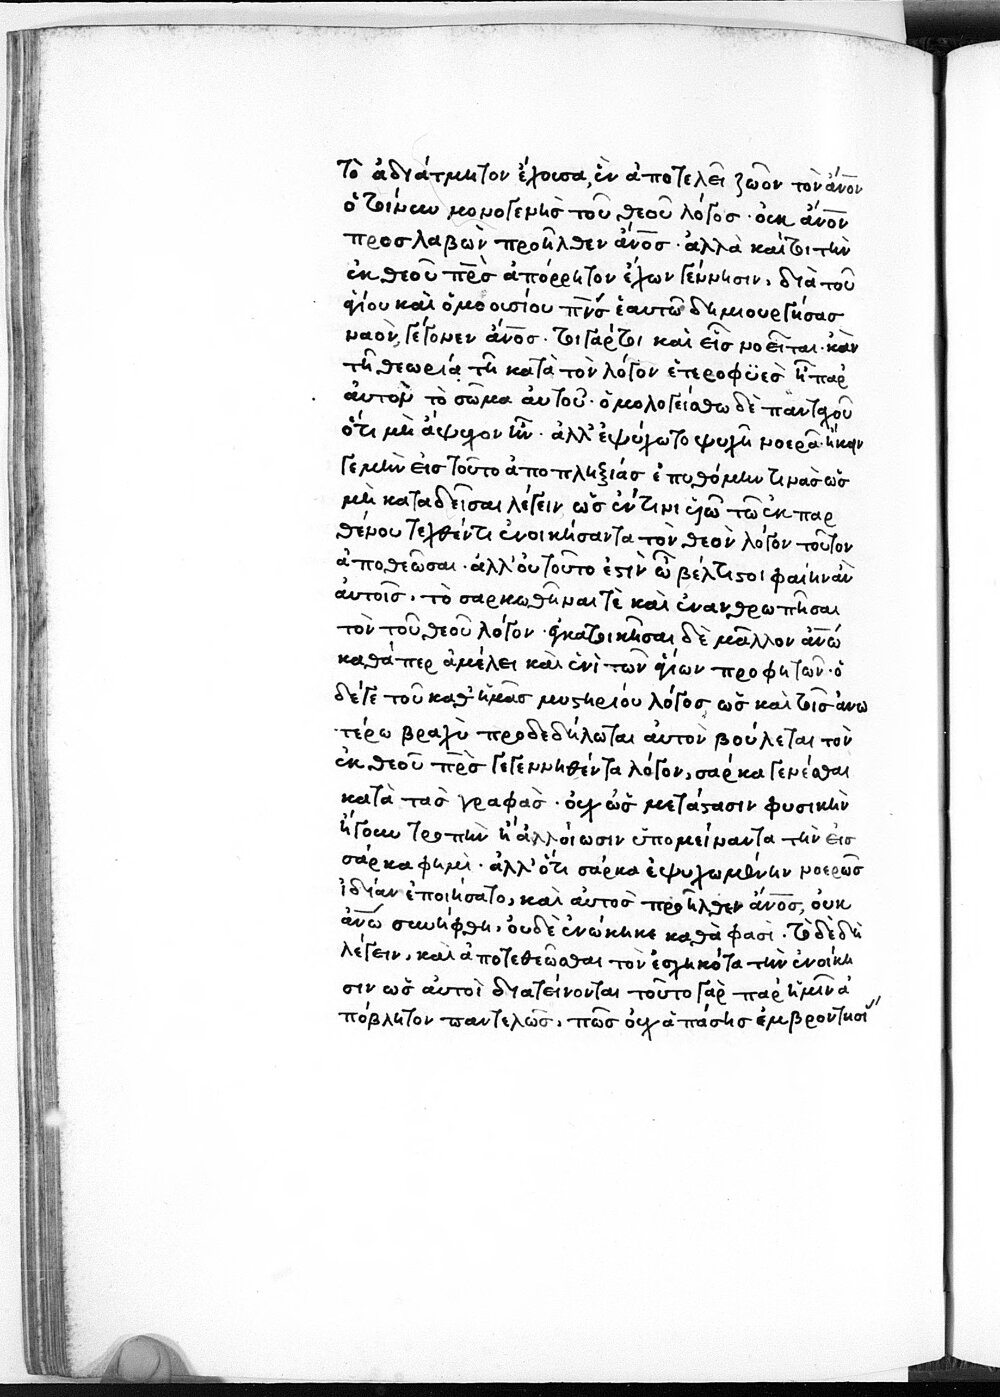 τὸ ἀδιάτμητον ἔχουσα, ἓν ἀποτελεῖ ζῶον τὸν ἄνον
ὁ τοίνυν μονογενὴς τοῦ θεοῦ λόγος · οὐκ ἄνον
προσλαβὼν προῆλθεν ἄνος · ἀλλὰ καίτοι τὴν
ἐκ θεοῦ πρς ἀπόρρητον ἔχων γέννησιν, διὰ τοῦ
ἁγίου καὶ ὁμοουσίου πνς ἑαυτῶ δημιουργήσας
ναὸν, γέγονεν ἄνος · τοιγάρτοι καὶ εἷς νοεῖται · κὰν
τῆ θεωρία τῆ κατὰ τὸν λόγον ἑτεροφυὲς ἦ παρ
αὐτὸν τὸ σῶμα αὐτοῦ · ὁμολογείσθω δὲ πανταχοῦ
ὅτι μὴ ἄψυχον ἦν · ἀλλ' ἐψύχωτο ψυχῆ νοερᾶ · ἧκον
γε μὴν εἰς τοῦτο ἀποπληξίας ἐπυθόμην τινὰς ὡς
μὴ καταδεῖσαι λέγειν ὡς ἐν τινι ἐχω τῶ ἐκ παρ
θένου τεχθέντι ἐνοικήσαντα τὸν θεὸν λόγον τοῦτον
ἀποθεῶσαι · ἀλλ' οὐ τοῦτο ἐστὶν ὦ βέλτιστοι φαίην ἂν
αὐτοῖς, τὸ σαρκωθῆναι τὲ καὶ ἐνανθρωπῆσαι
τὸν τοῦ θεοῦ λόγον · ἐγκατοικῆσαι δὲ μᾶλλον ἀνω
καθάπερ ἀμέλει καὶ ἑνὶ τῶν ἁγίων προφητῶν · ὁ
δέγε τοῦ καθ' ἡμᾶς μυστηρίου λόγος ὡς καὶ τοῖς ἀνω
τέρω βραχὺ προδεδήλωται αὐτὸν βούλεται τὸν
ἐκ θεοῦ πρς γεγεννηθέντα λόγον, σάρκα γενέσθαι
κατὰ τὰς γραφὰς · οὐχ ὡς μετάστασιν φυσικὴν
ἤγουν τροπὴν ἢ ἀλλοίωσιν ὑπομείναντα τὴν εἰς
σάρκα φημὶ · ἀλλ' ὅτι σάρκα ἐψυχωμένην νοερῶς
ἰδίαν ἐποιήσατο, καὶ αὐτὸς προῆλθεν ἄνος, οὐκ
ἀνω συνήφθη, οὐδὲ ἐνώκηκε καθὰ φασὶ · τὸ δὲ δὴ
λέγειν, καὶ ἀποτεθεῶσθαι τὸν ἐσχηκότα τὴν ἐνοίκη
σιν ὡς αὐτοὶ διατείνονται τοῦτο γὰρ παρ' ἡμῖν ἀ
πόβλητον παντελῶς, πῶς οὐχ ἁπάσης ἐμβροντησί